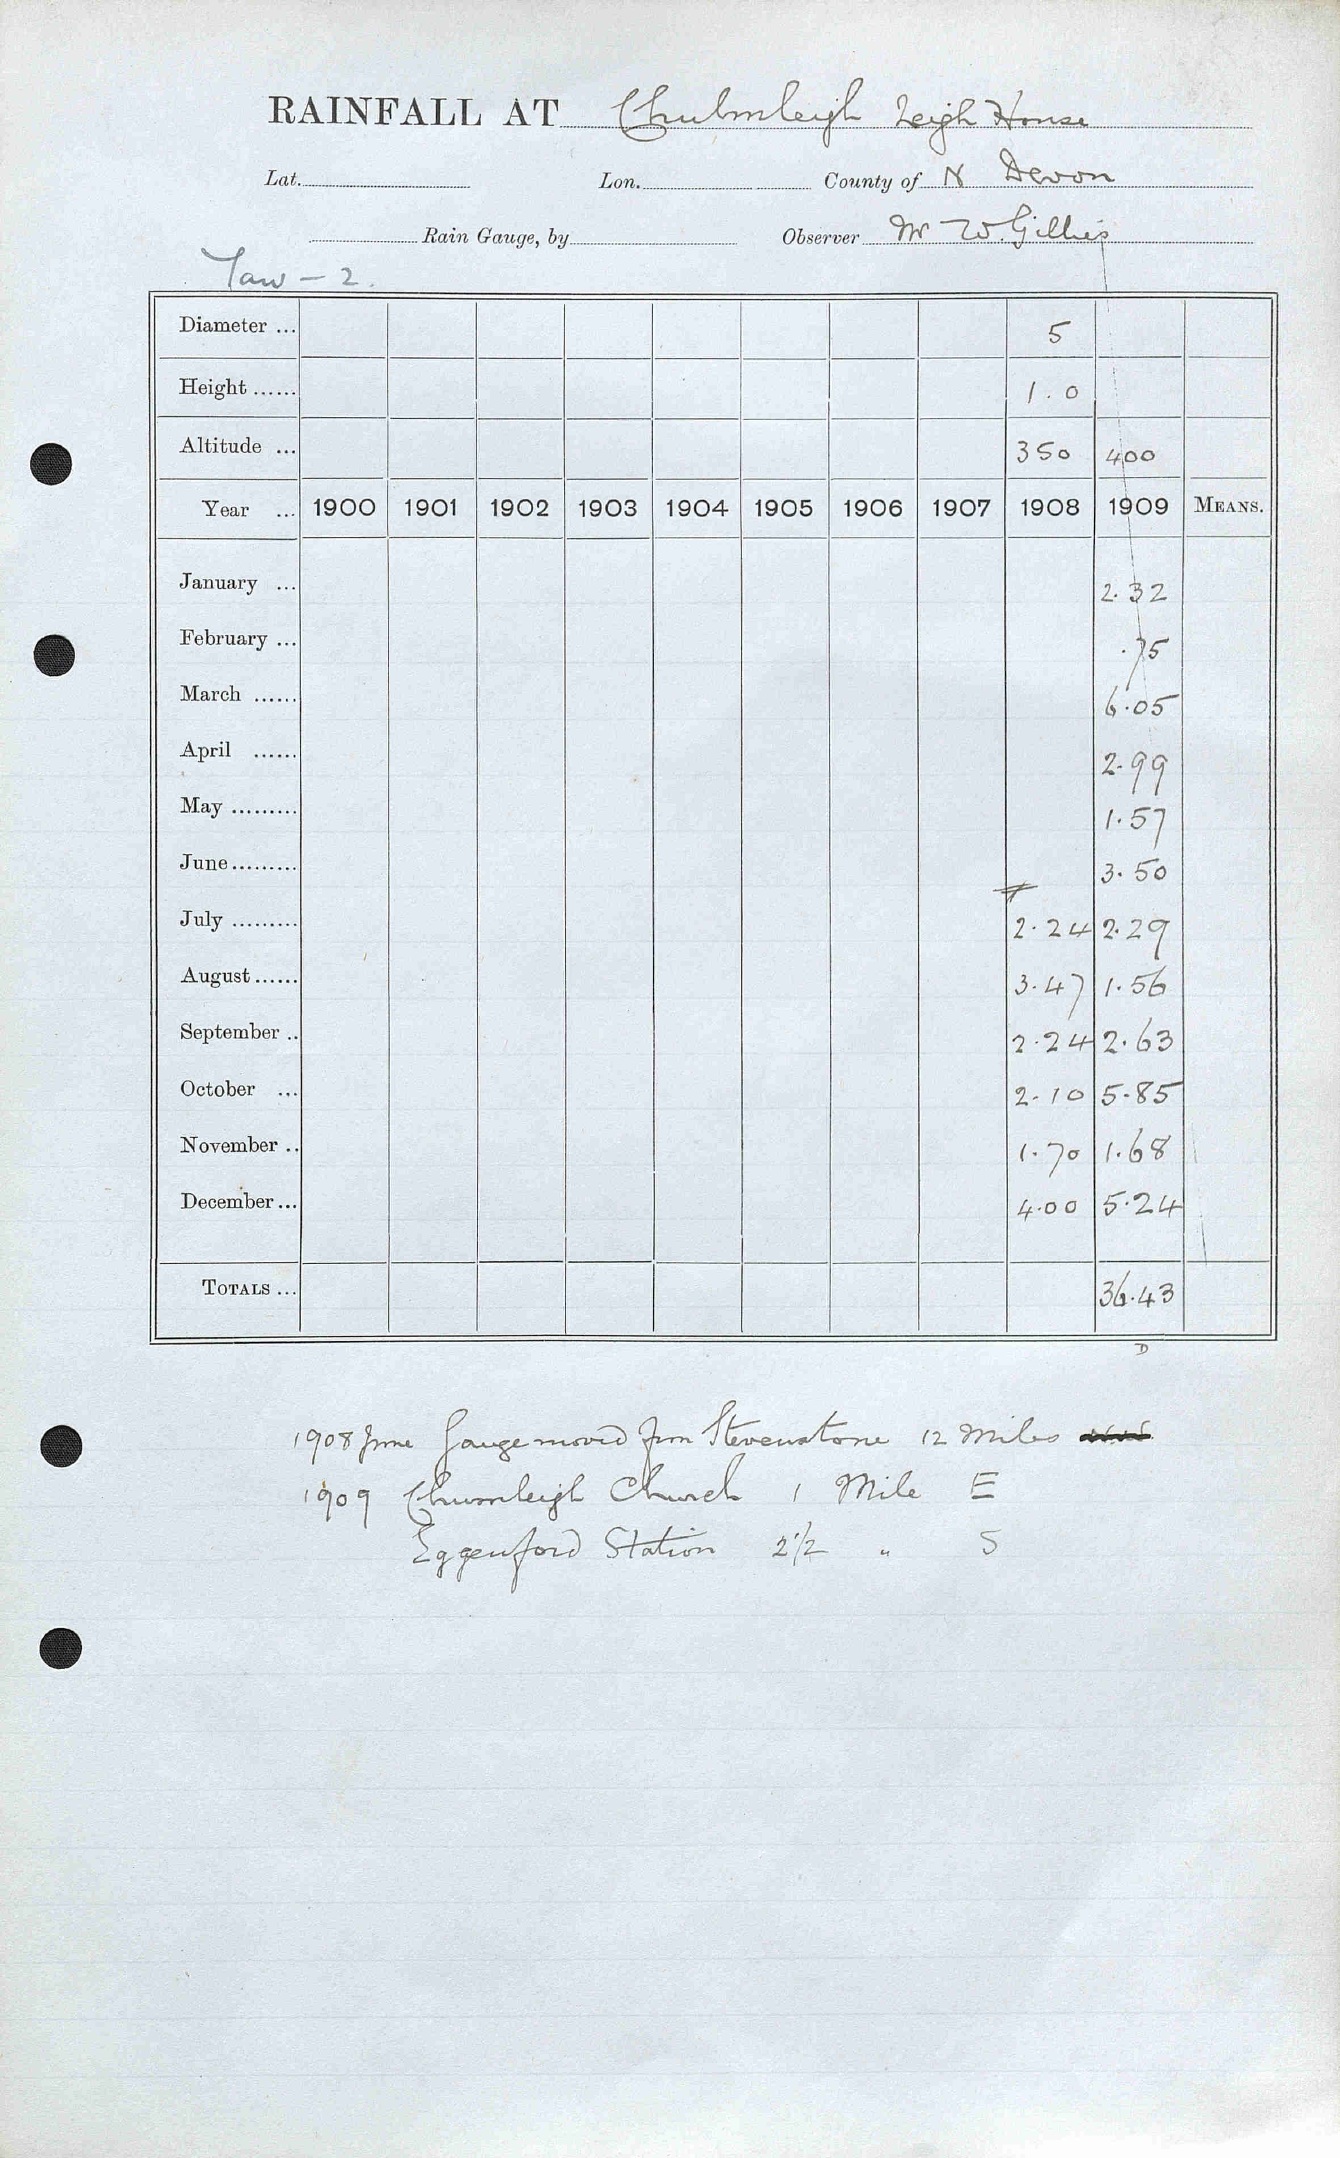 RAINFALL AT Chulmleigh Leigh House
Lat. Lon. County of N Devon
Rain Gauge, by Observer Mr W. Gillies
Taw - 2.
Diameter ... 5
Height ...... 1.0
Altitude ... 350 400
Year ... 1900 1901 1902 1903 1904 1905 1906 1907 1908 1909 MEANS.
January ... 2.32
February ... .75
March ...... 6.05
April ...... 2.99
May ......... 1.57
June ......... 3.50
July ......... 2.24 2.29
August ...... 3.47 1.56
September .. 2.24 2.63
October ... 2.10 5.85
November .. 1.70 1.68
December ... 4.00 5.24
TOTALS ... 36.43
D
1908 June Gauge moved from Stevenstone 12 Miles
1909 Chumleigh Church 1 Mile E
Eggesford Station 2 1/2 " S